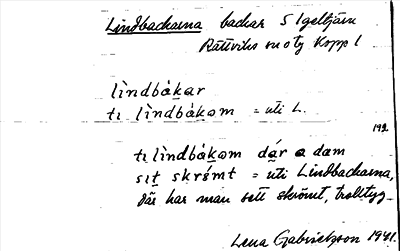 Lindbackarna backar S Igeltjärn
Rättviks
lìndbákar
tı lìndbákọm = uti L.
192.
tı lìndbákọm dạ́r a dam
sıt skrǽmt = uti Lindbackarna,
där har man sett skrömt, trolltyg
Lena Gabrielsson 1941.